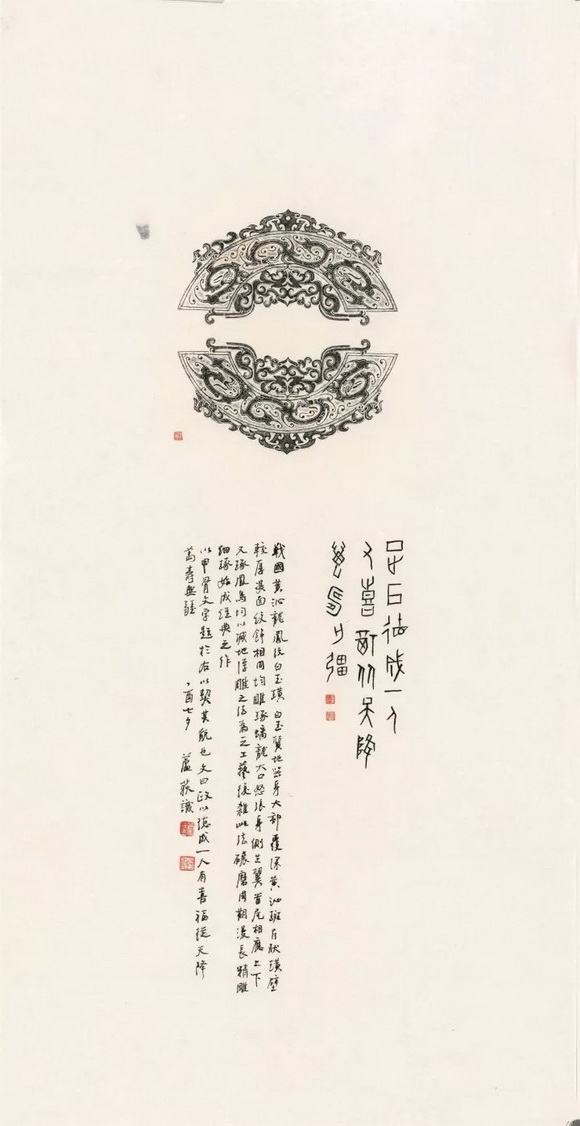 政以德成一人
又喜福從天降
萬壽無疆
戰國黃沁龍鳳紋白玉璜白玉質地器身大部覆深黃沁斑片狀璜壁
較厚滿面紋飾相同均雕琢螭龍大口怒張身側生翼首尾相應上下
又琢鳳鳥均以減地浮雕之法為之工藝復雜此法碾磨周期漫長精雕
細琢始成經典之作
以甲骨文字題於右以契其貌也文曰政以德成一人有喜福從天降
萬壽無疆
丁酉七夕 識